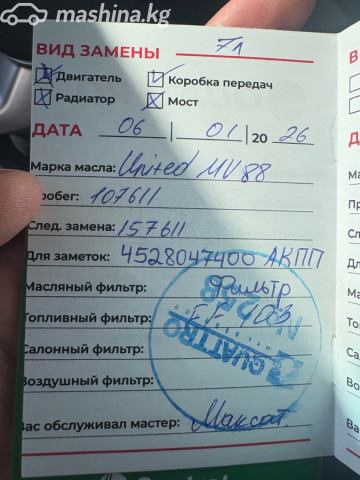 mashina.kg
ВИД ЗАМЕНЫ 7л
Двигатель Коробка передач
Радиатор Мост
ДАТА 06 01 2026
Марка масла: United MV 88
Пробег: 107611
След. замена: 157611
Для заметок: 4528047400 АКПП
Масляный фильтр: Фильтр
Топливный фильтр: FF 903
QUATTRO
Салонный фильтр:
Воздушный фильтр:
Вас обслуживал мастер: Максат